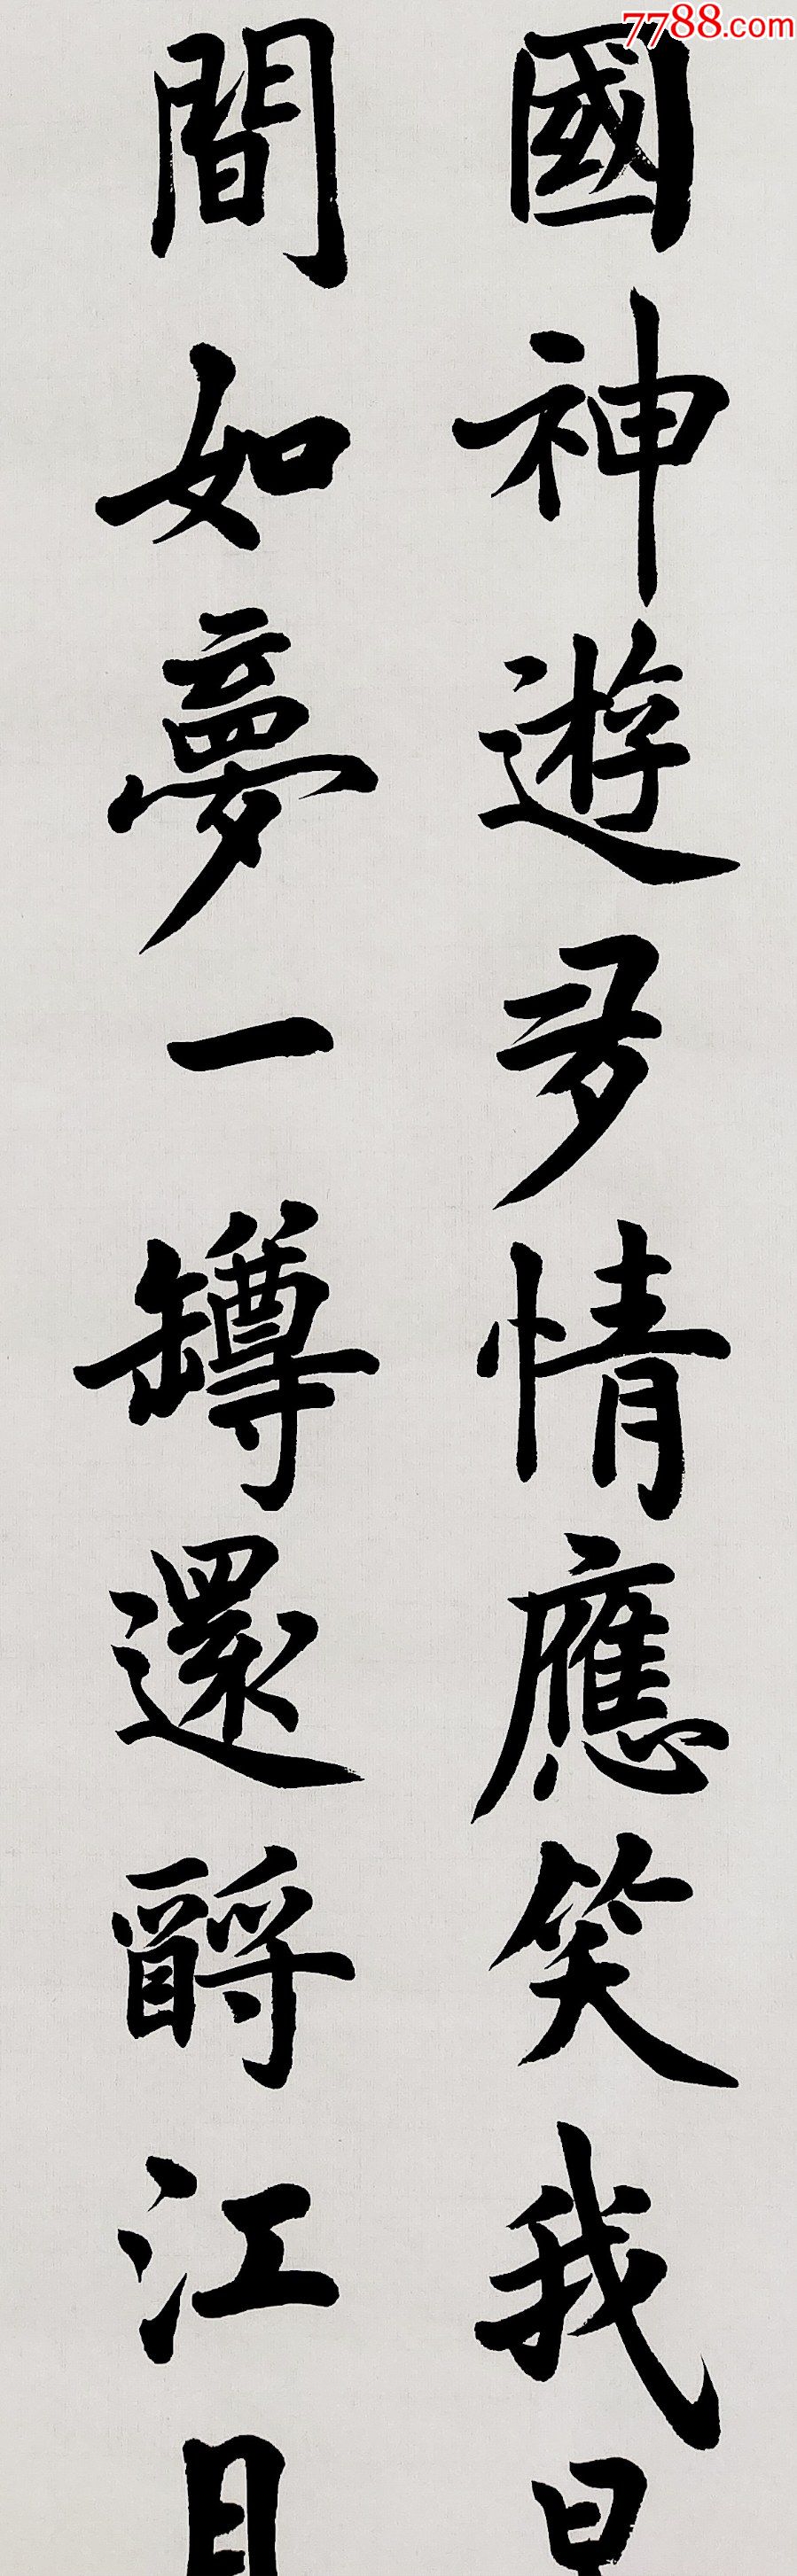 7788.com
國神遊多情應笑我早
間如夢一罇還酹江月